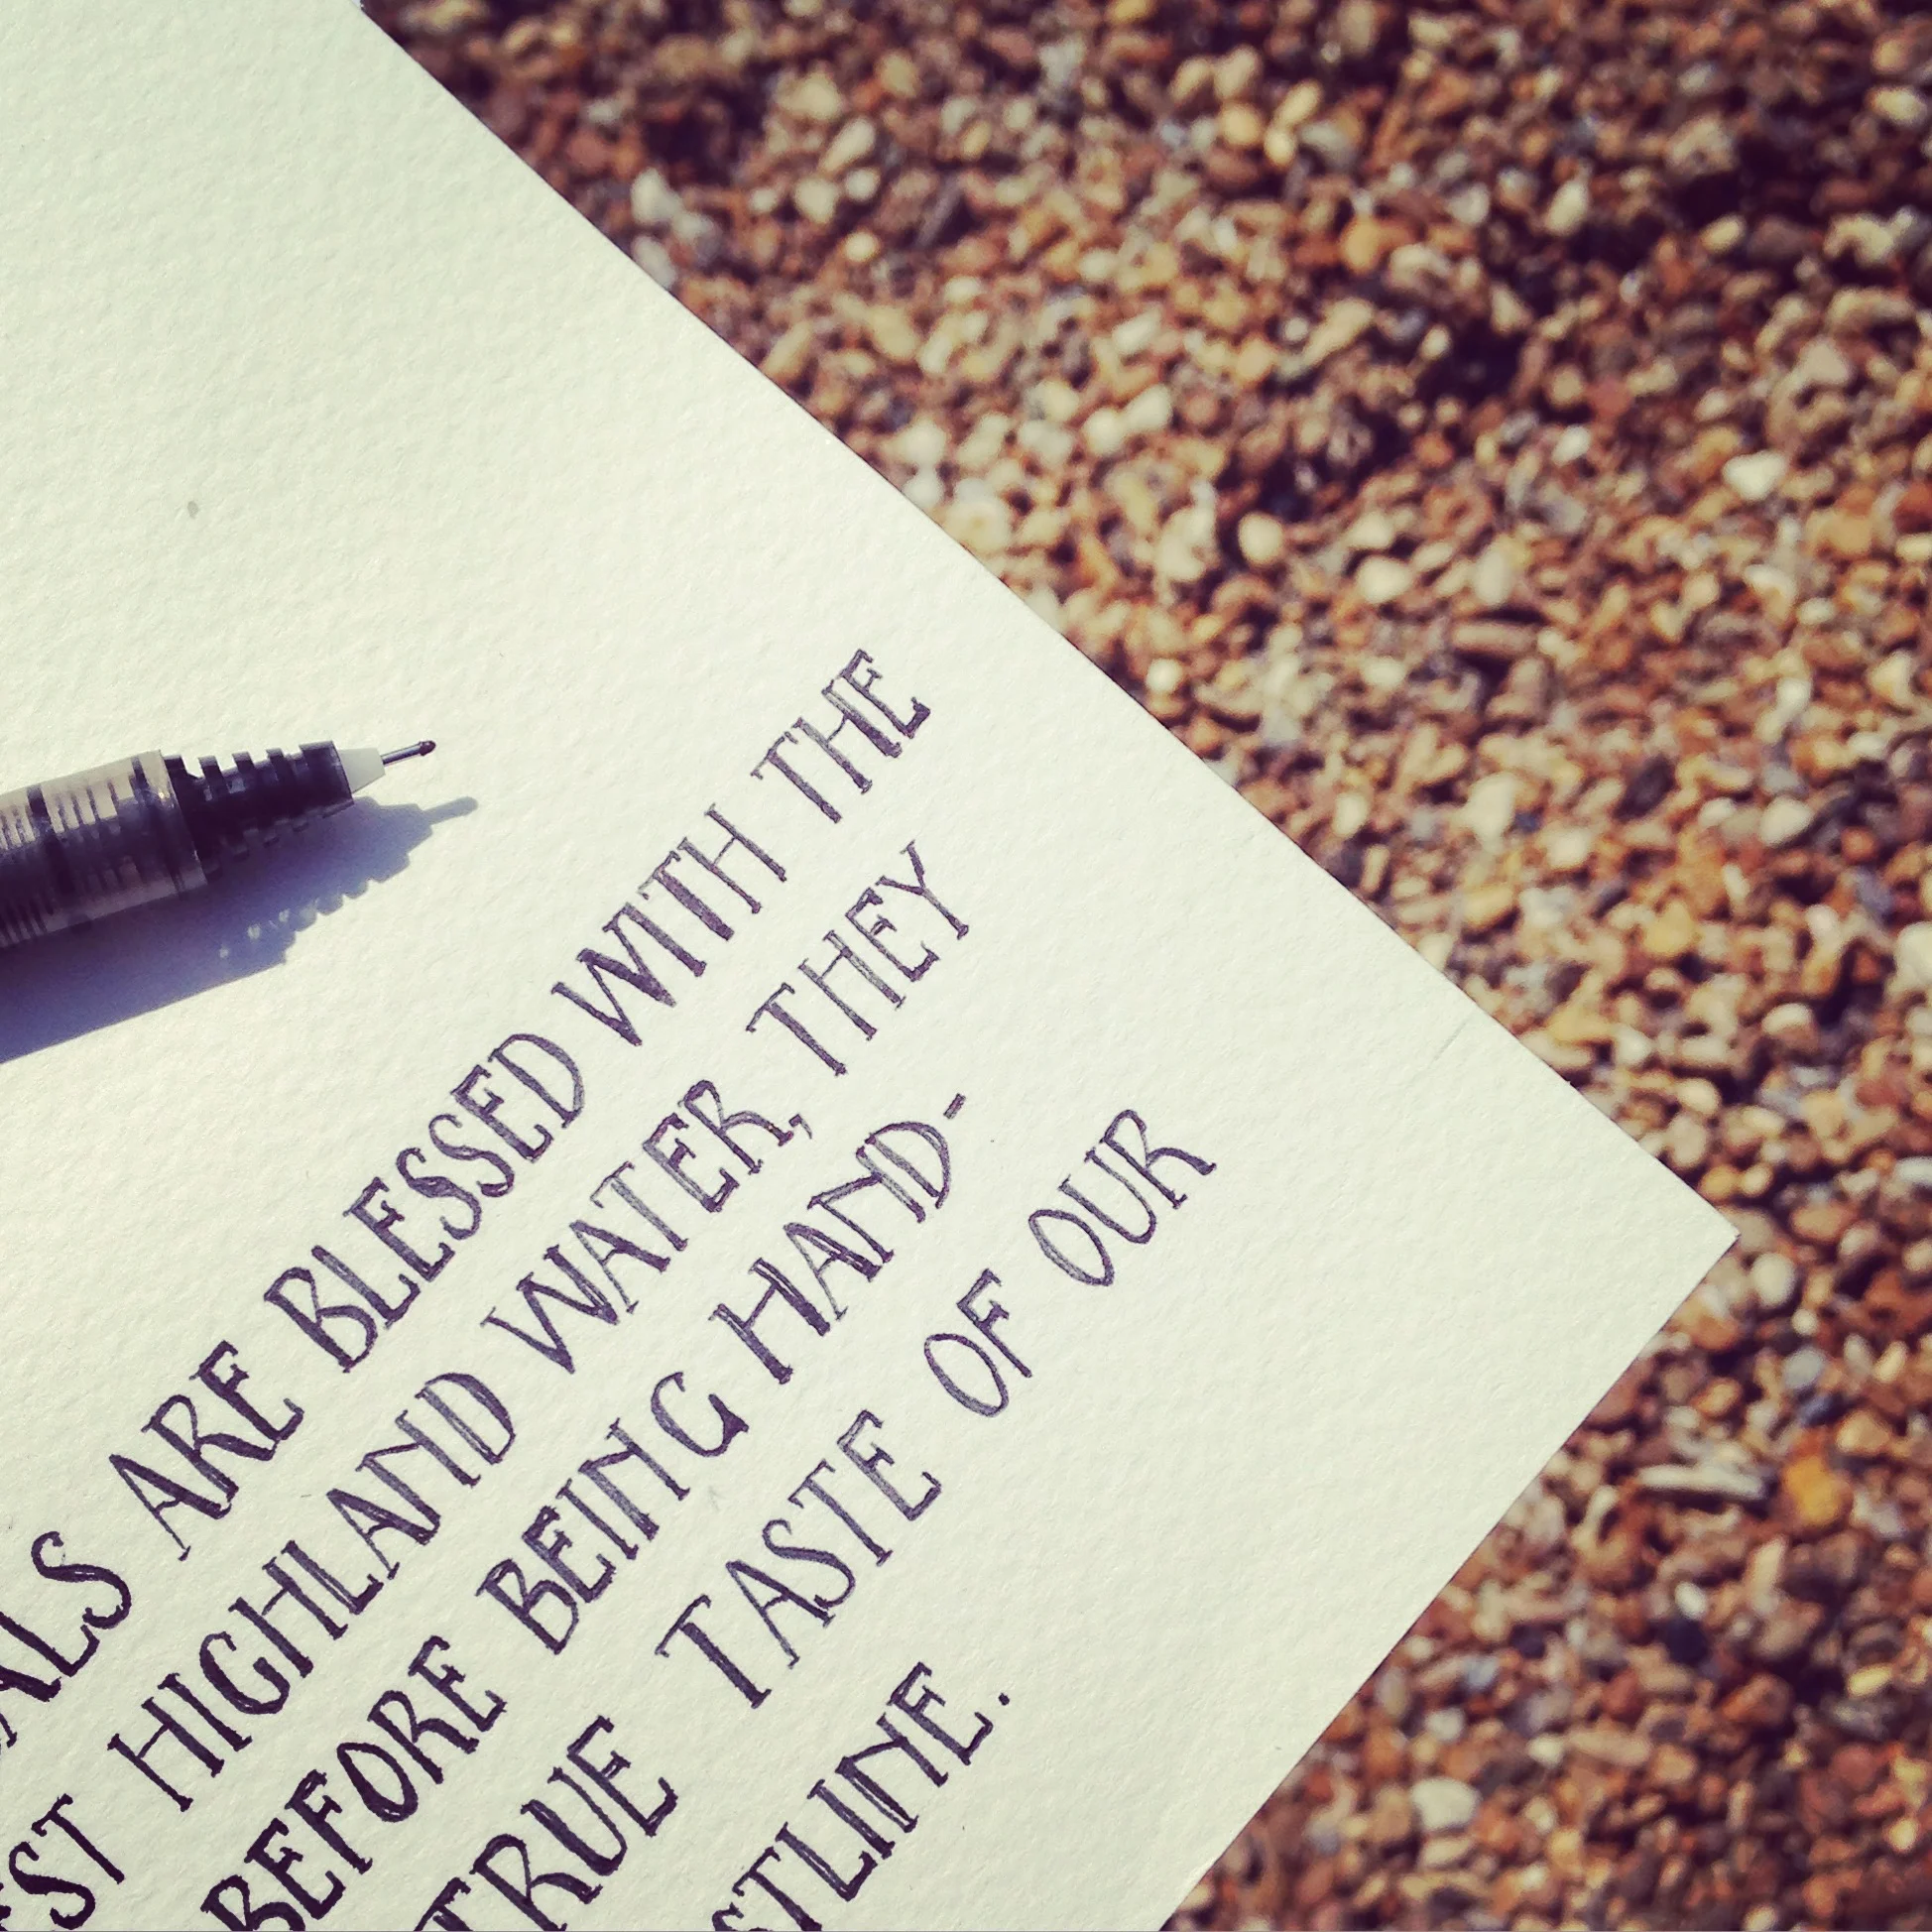 ALS ARE BLESSED WITH THE
EST HIGHLAND WATER, THEY
BEFORE BEING HAND-
TRUE TASTE OF OUR
STLINE.